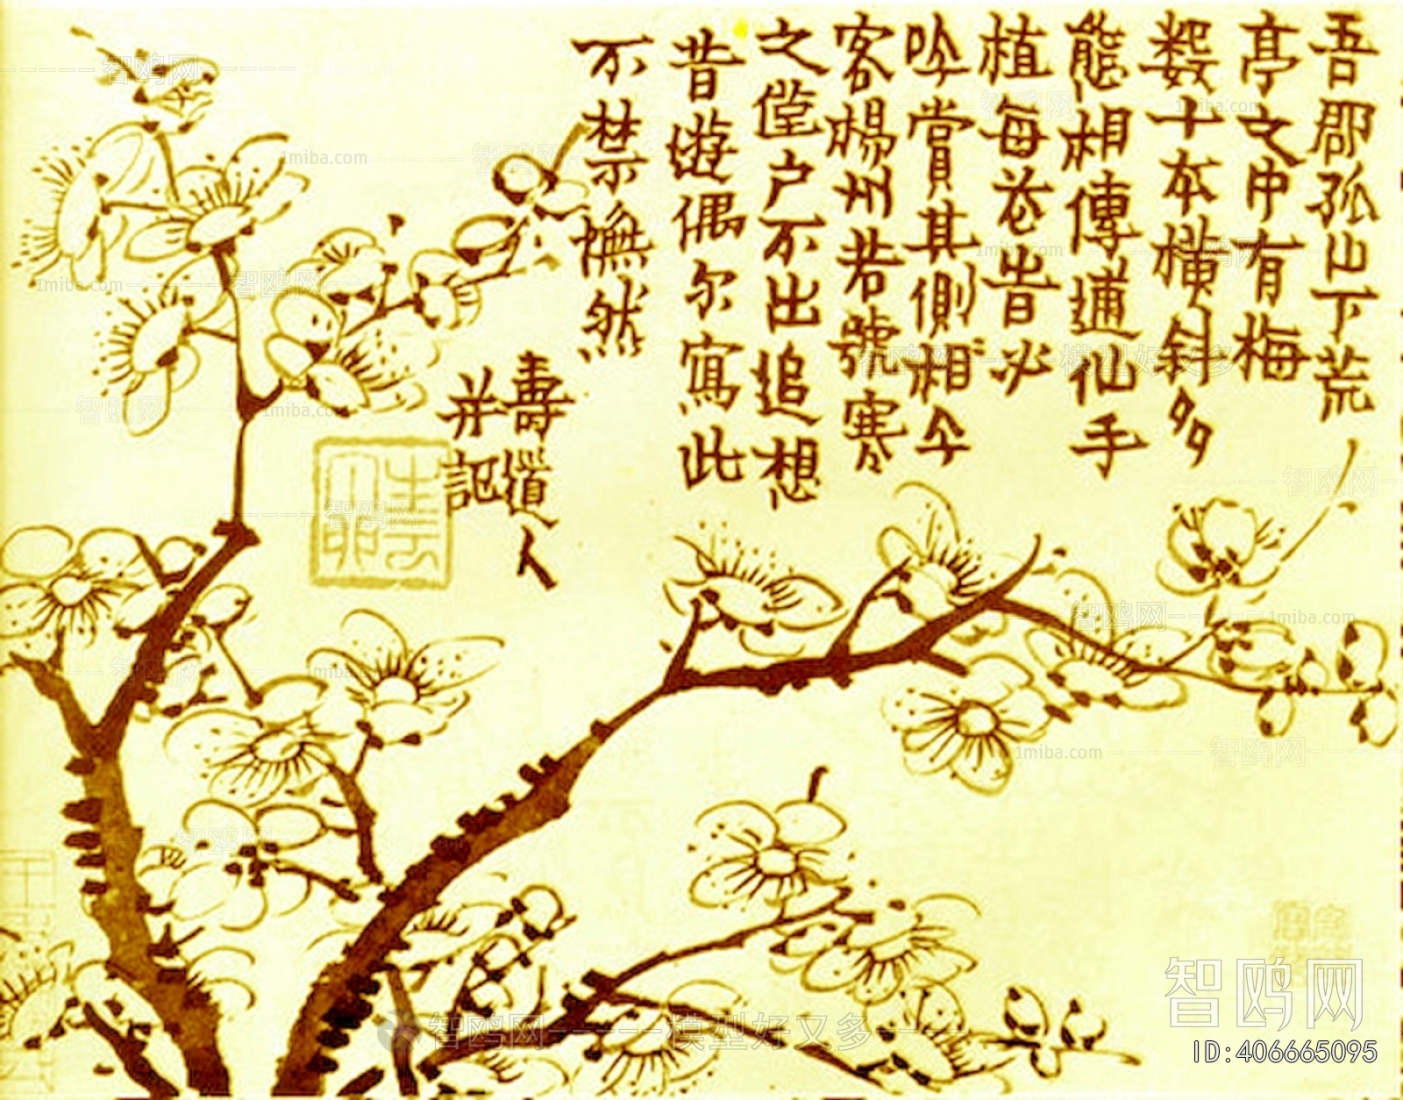 吾郡孤山下荒
亭之中有梅
數十本橫斜多
態相傳逋仙手
植每花旹必
吟賞其側相今
客楊州若號寒
之戶不出追想
昔遊偶尔寫此
不禁憮然
壽道人
并記
智鸥网
ID:406665095
1miba.com
智鸥网-----模型好又多